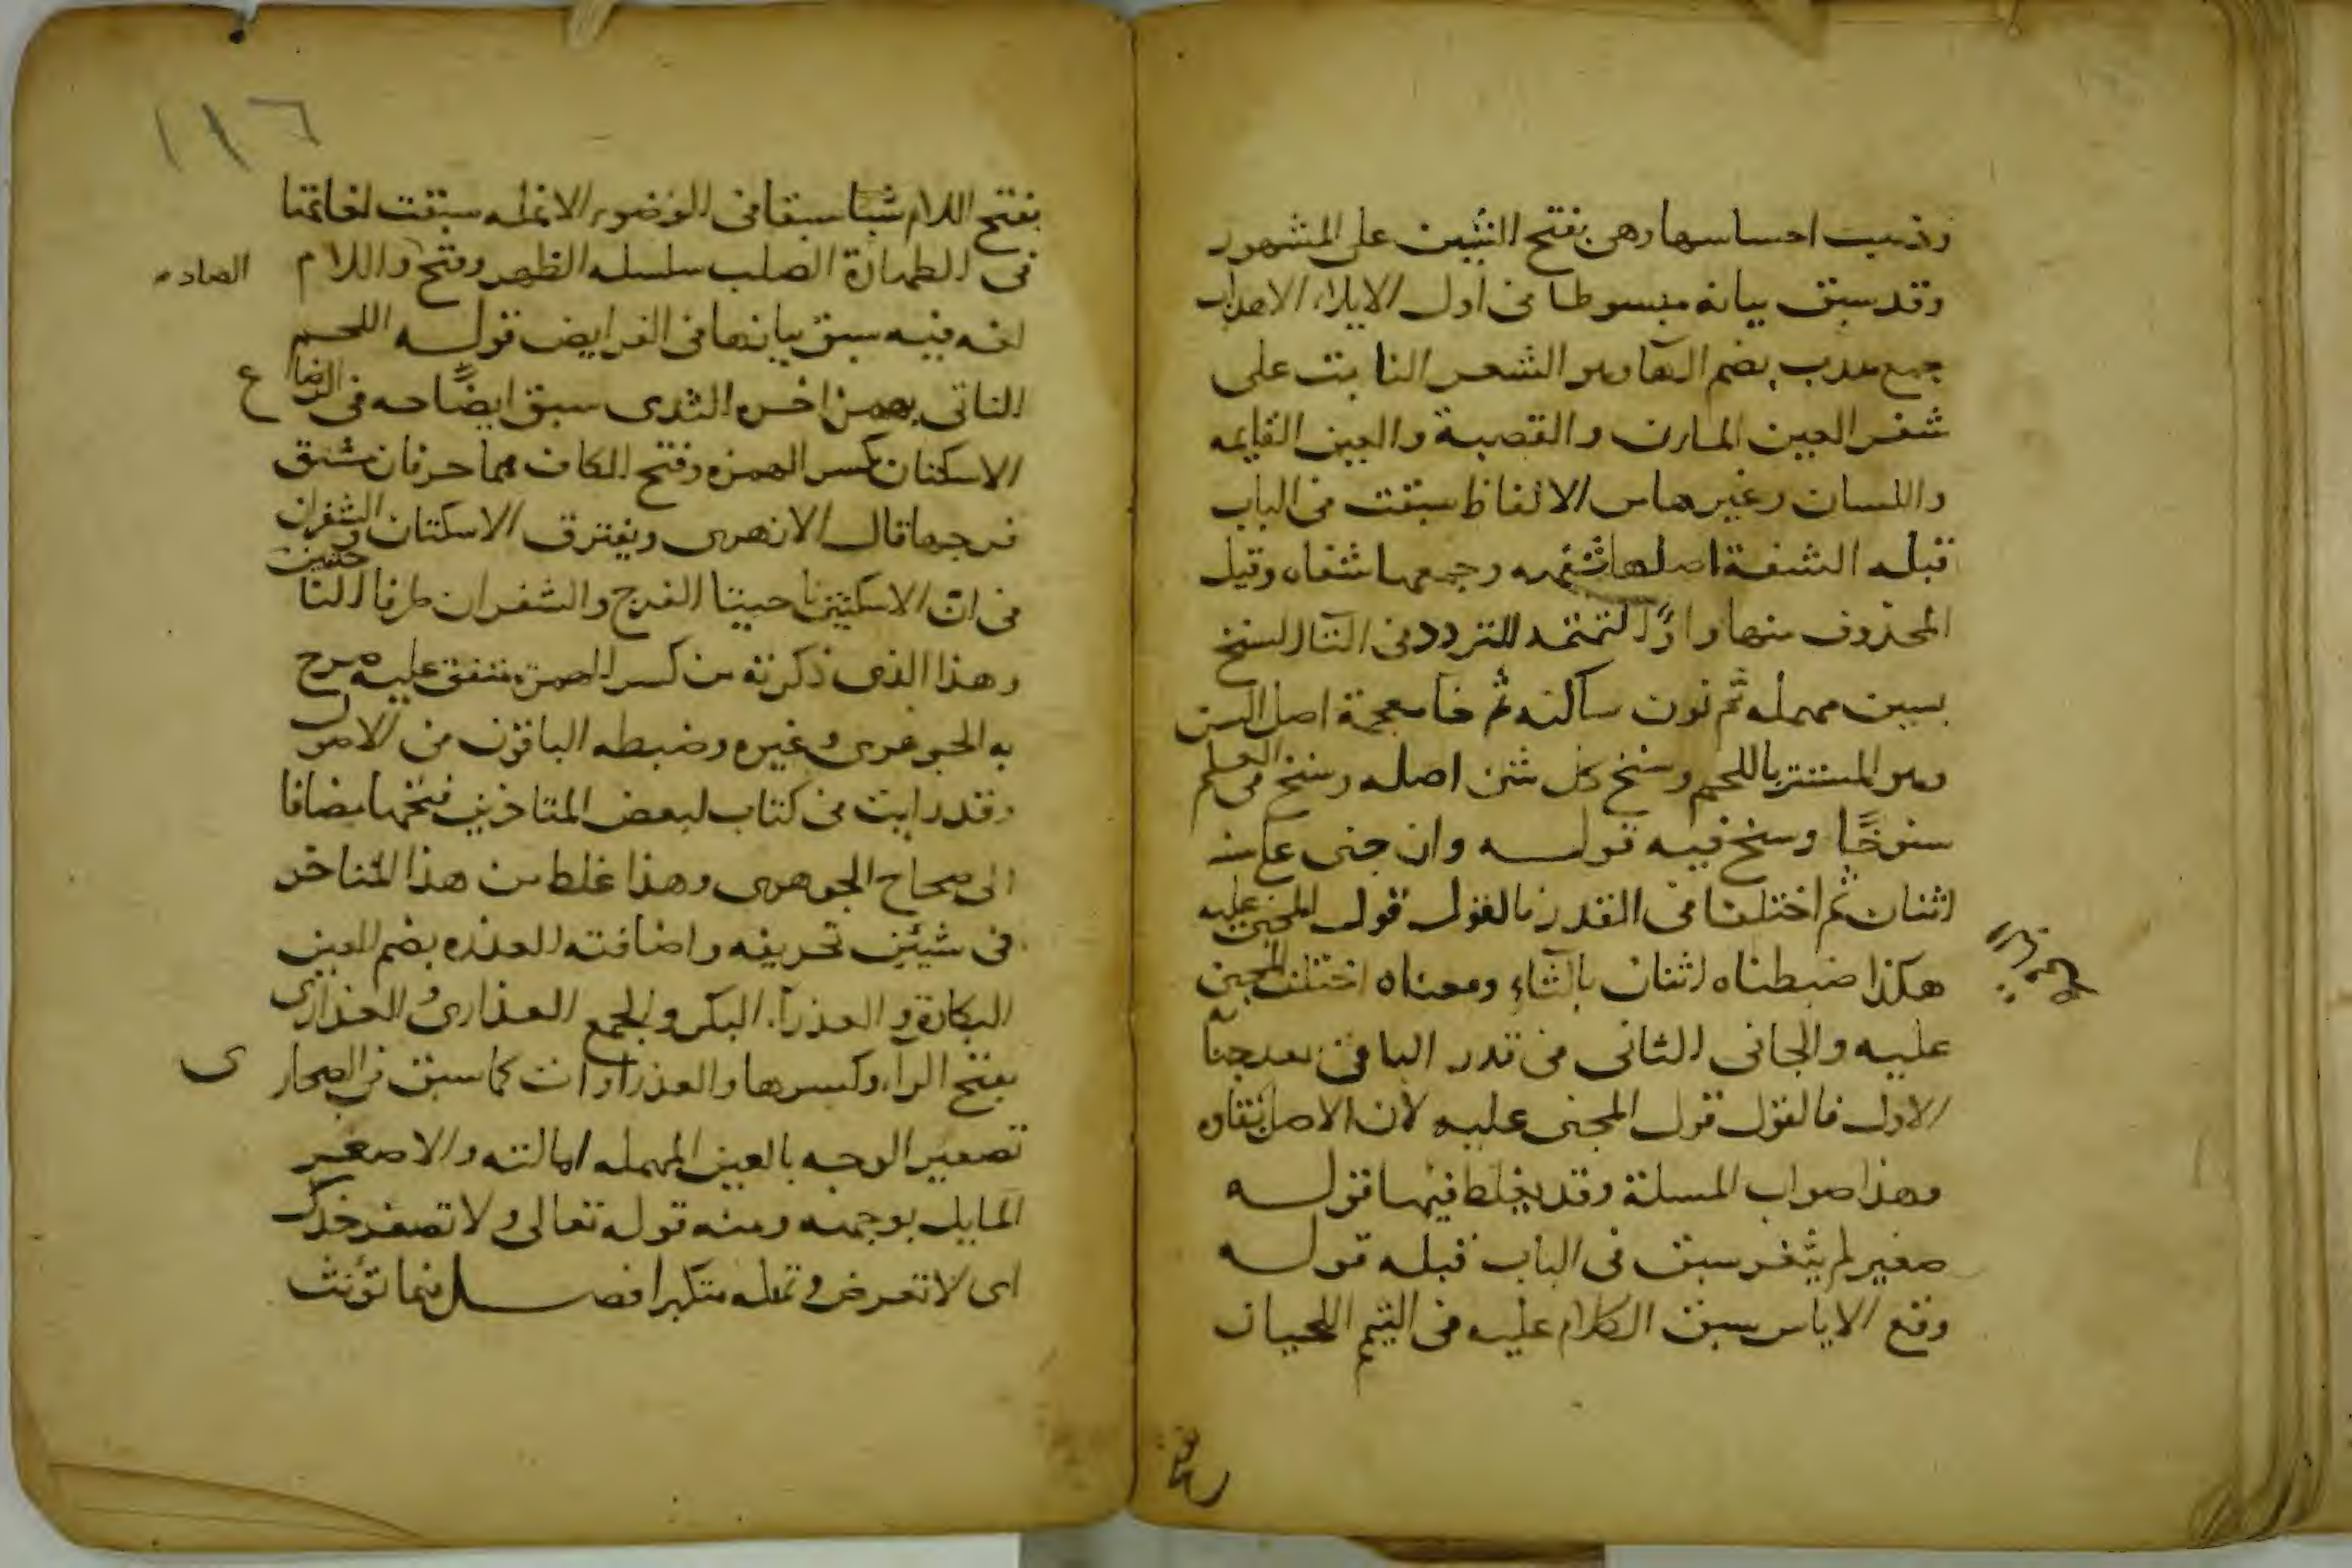 وذهب احساسها وهي بفتح الشين على المشهور
وقد سبق بيانه مبسوطا في اول الايلاء الاهداب
جمع هدب بضم الهآ وهو الشعر النابت على
شفر العين المارن والقصبة والعين القايمه
واللسان وغيرها من الالفاظ سبقت في الباب
قبله الشفة اصلها شفهه وجمعها شفاه وقيل
المحذوف منها واوٌ التمتمه للتردد في التآ السنخ
بسين مهمله ثم نون ساكنه ثم خآ معجمة اصل السن
وهو المستتر باللحم وسنخ كل شئ اصله وسنخ في العلم
سنوخًا وسنخ فيه قولــه وان جنى على سنه
اثنان ثم اختلفا في القدر فالقول قول المجني عليه
هكذا ضبطناه اثنان بالثاءِ ومعناه اختلف المجني
عليه والجاني الثاني في قدر الباقي بعد جناية
الاول فالقول قول المجنى عليه لان الاصل بقاوه
وهذا صواب المسلة وقد يغلط فيها قولــه
صغير لم يثغر سبق في الباب قبله قولــه
وقع الاياس سبق الكلام عليه في التيمم اللحيان
١١٦
بفتح اللام شبا سبقا في الوضوء الانمله سبقت لغاتها
في الطهارة الصلب سلسله الظهر وفتح واللام
الصاد
لغه فيه سبق بيانها في الفرايض قولــه اللحم
الناتي بهمز اخره الثدى سبق ايضًاحه في الرضا
ع
الاسكتان بكسر الهمزه وفتح الكاف هما حرفان شق
فرجها قال الازهرى ويفترق الاسكتان والشفران
في انّ الاسكتين ناحيتا الفرج والشفران طرفا الناحيتين
وهذا الذى ذكرته من كسر الهمزة متفق عليه صرح
به الجوهرى وغيره وضبطه الباقون من الاصول
وقد رايت في كتاب لبعض المتاخرين فتحها مضافا
الى صحاح الجوهرى وهذا غلط من هذا المتاخر
في شيئين تحريفه واضافته العذره بضم العين
البكارة والعذرآء البكر والجمع العذارىُ العذارى
بفتح الرآء وكسرها والعذراوات كما سبق في الصحار
ى
تصعير الوجه بالعين المهمله امالته والاصعر
المايل بوجهه ومنه قوله تعالى ولا تصعر خدك
اى لا تعرض وتمله متكبرا فصــل فيما تؤنث